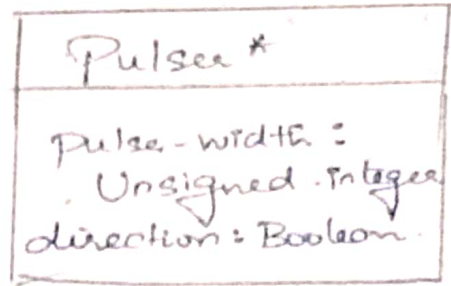 Pulser *
Pulse-width :
Unsigned integer
direction : Boolean